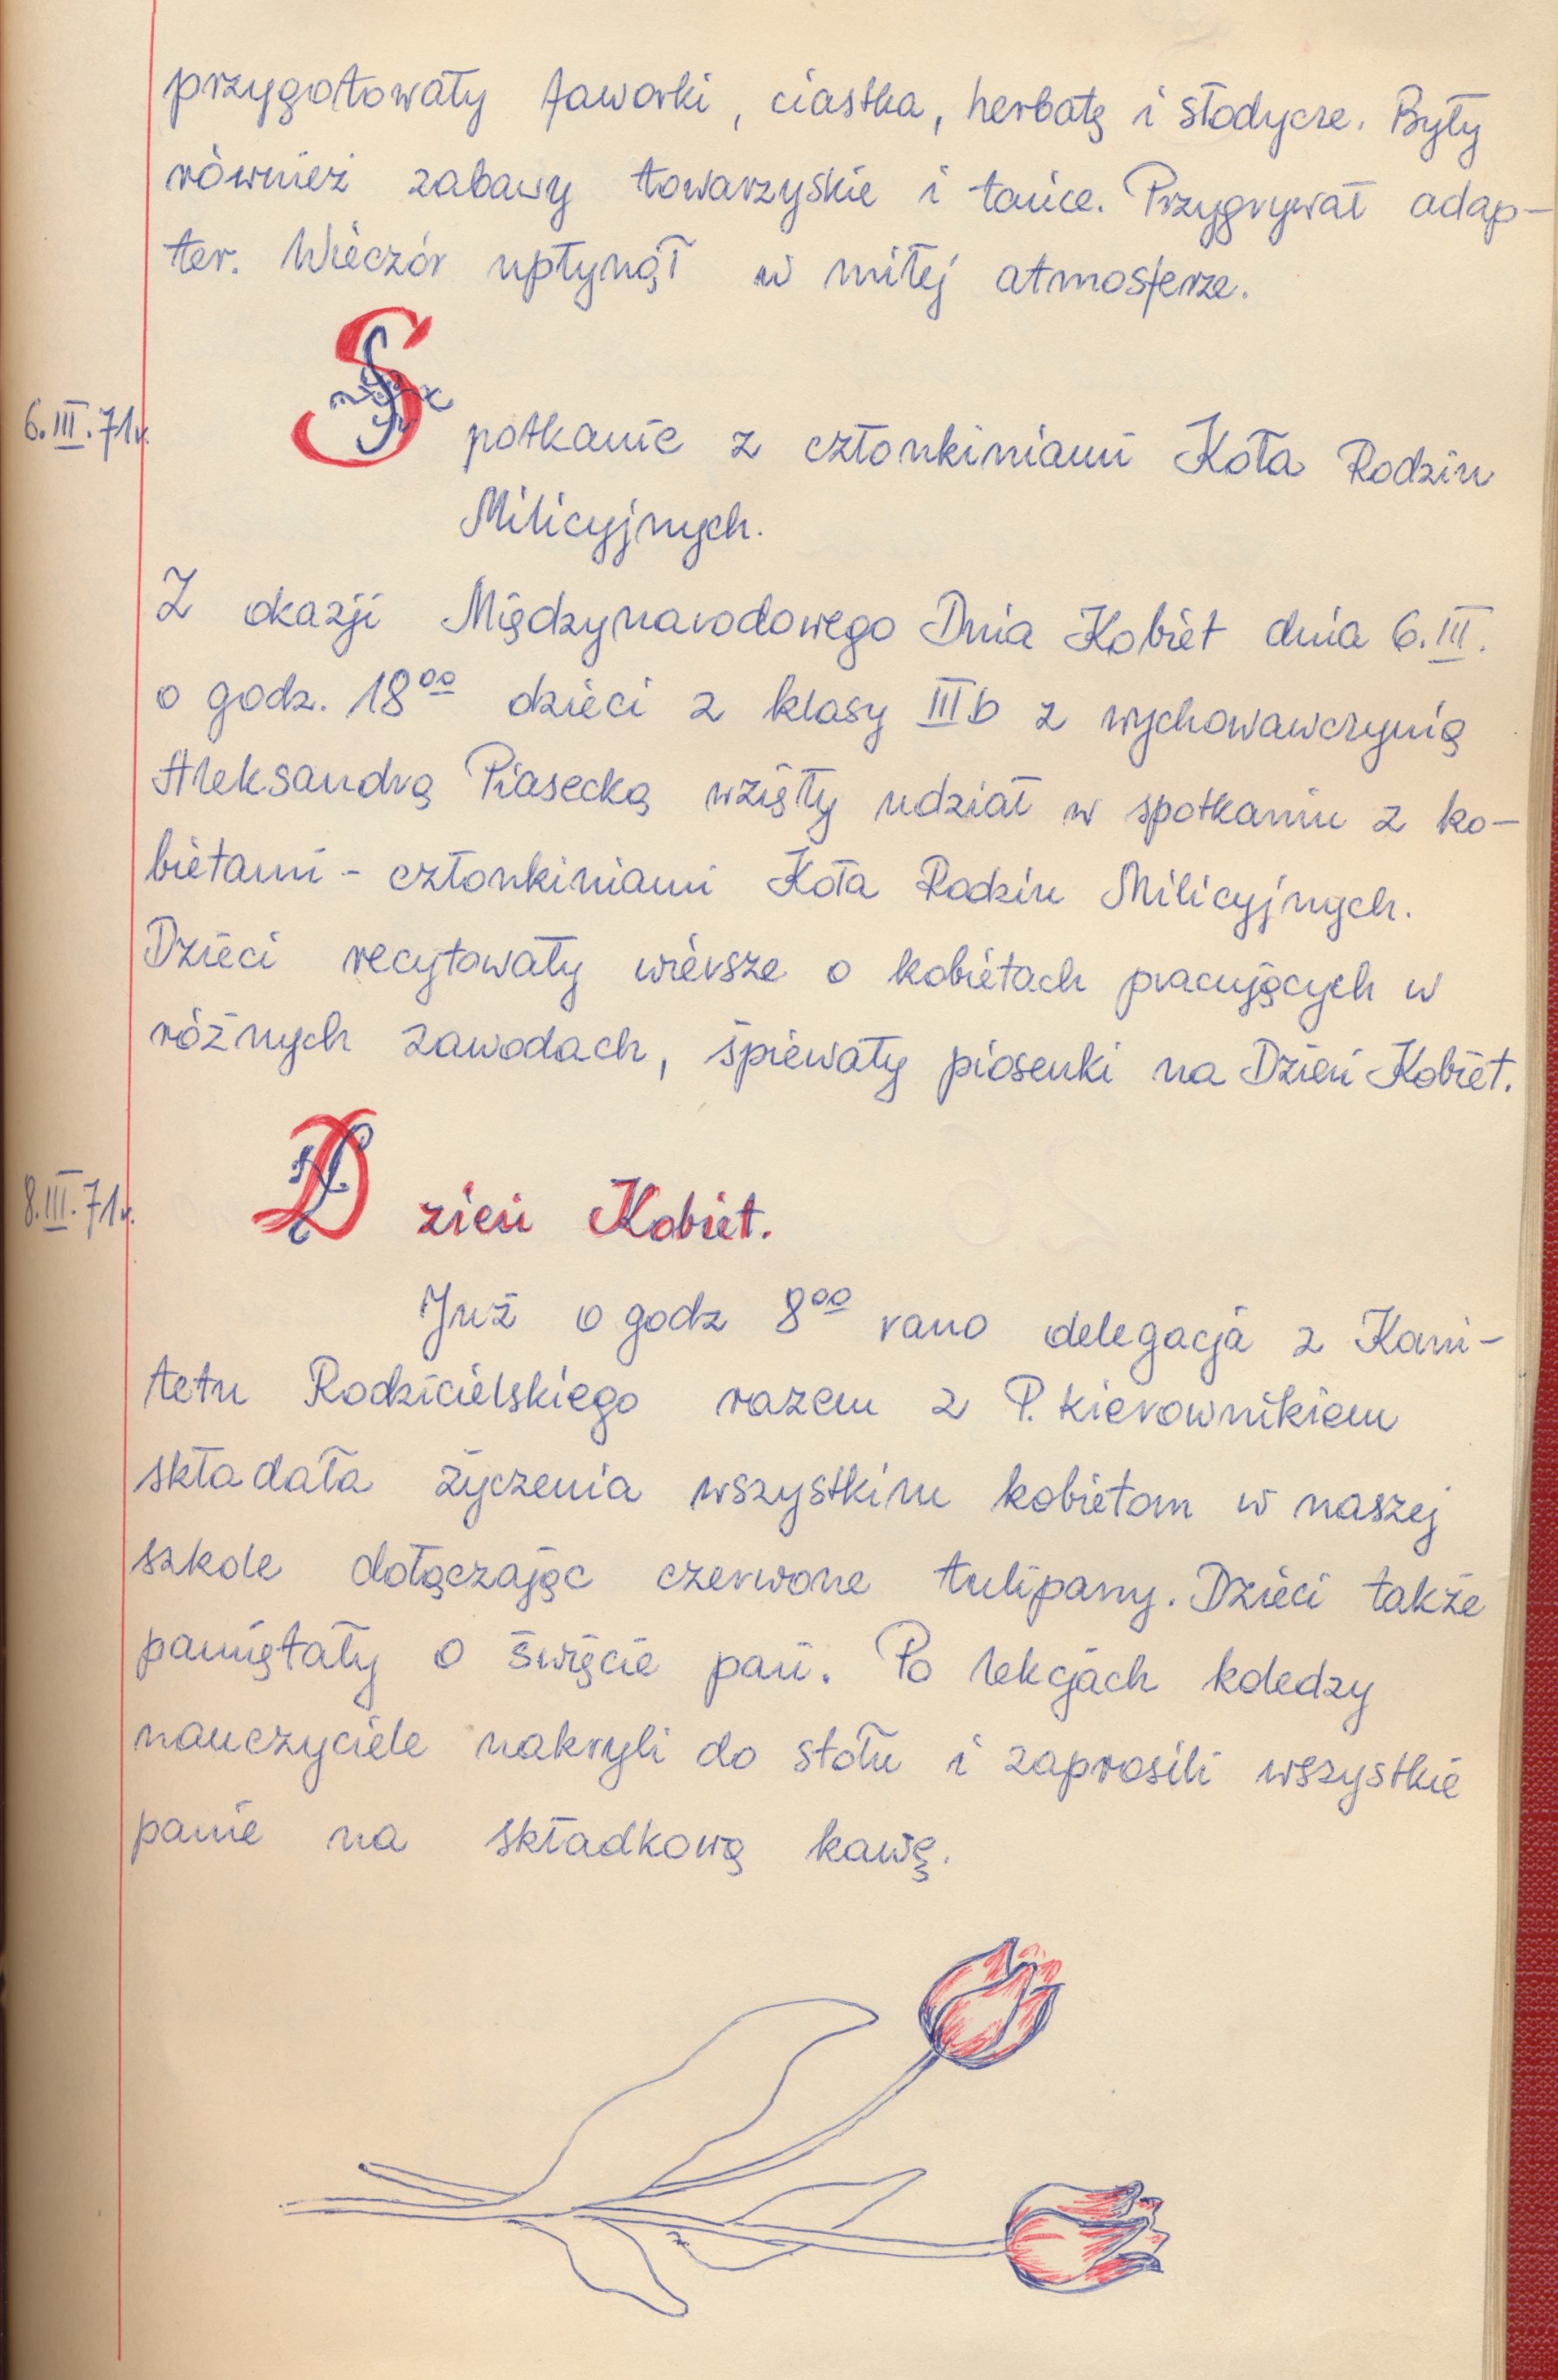 przygotowały faworki, ciastka, herbatę i słodycze. Były
również zabawy towarzyskie i tańce. Przygrywał adap-
ter. Wieczór upłynął w miłej atmosferze.
6.III.71r. Spotkanie z członkiniami Koła Rodzin
Milicyjnych.
Z okazji Międzynarodowego Dnia Kobiet dnia 6.III.
o godz. 18⁰⁰ dzieci z klasy IIIb z wychowawczynią
Aleksandrą Piasecką wzięły udział w spotkaniu z ko-
bietami - członkiniami Koła Rodzin Milicyjnych.
Dzieci recytowały wiersze o kobietach pracujących w
różnych zawodach, śpiewały piosenki na Dzień Kobiet.
8.III.71r. Dzień Kobiet.
Już o godz 8⁰⁰ rano delegacja z Komi-
tetu Rodzicielskiego razem z P. kierownikiem
składała życzenia wszystkim kobietom w naszej
szkole dołączając czerwone tulipany. Dzieci także
pamiętały o święcie pań. Po lekcjach koledzy
nauczyciele nakryli do stołu i zaprosili wszystkie
panie na składkową kawę.